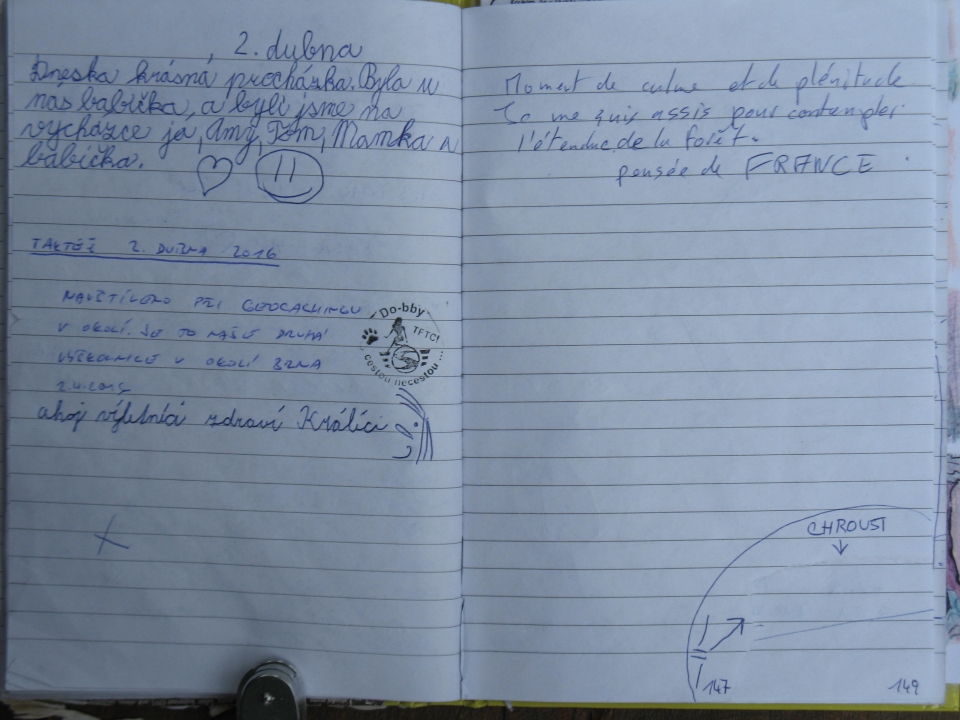 2. dubna
Dneska krásná procházka. Byla u
nás babička, a byli jsme na
vycházce já, Amy, Tom, Mamka a
babička.
TAKTÉŽ 2. DUBNA 2016
NAVŠTÍVENO PŘI GEOCACHINGU
V OKOLÍ. JE TO NAŠE DRUHÁ
V OKOLÍ BRNA
Do-bby
TFTC!
cestou necestou ...
ahoj výletníci zdraví Králíci
Moment de calme et de plénitude
Je me suis assis pour contempler
l'étendue de la forêt.
pensée de FRANCE
CHROUST
147
149